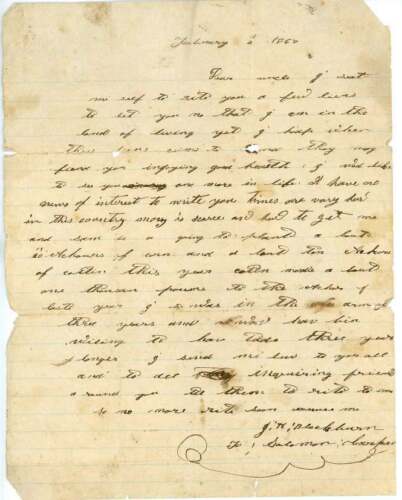 February 1860
Dear uncle I seat
me self to rite you a few lines
to let you no that I am in the
land of living yet I hope when
these lines come to hand they may
feand you injoying good health I wod like
to se you one more in life I have no
news of interest to write you times are vary hard
in this country mony is scarce and hard to get me
and son is a going to plant a bout
15 Achaurs of corn and a bout ten Achers
of cotten this year cotten made a bout
one thousan pounds to the acher
last year I was in the army
three years and wod have bin
willing to have three years
longer I send mi luv to you all
and to all inquiring friend
a round you tel them to rite to me
so no more rite soon
J. H. Blackburn
To Solomon